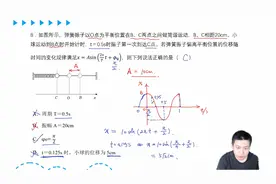 8. 如图所示，弹簧振子以O点为平衡位置在B、C两点之间做简谐振动，B、C相距20cm，小
球运动到B点时开始计时，t=0.5s时振子第一次到达C点，若弹簧振子偏离平衡位置的位移随
时间的变化规律满足x=Asin(2π/T t+φ₀)，则下列说法正确的是（C）
A=10cm
A. 周期T=0.5s
B. 振幅A=20cm
C. φ₀=π/2
D. t=0.125s时，小球的位移为5cm
C O B
x=10sin(2πt+π/2)
t=0.125s